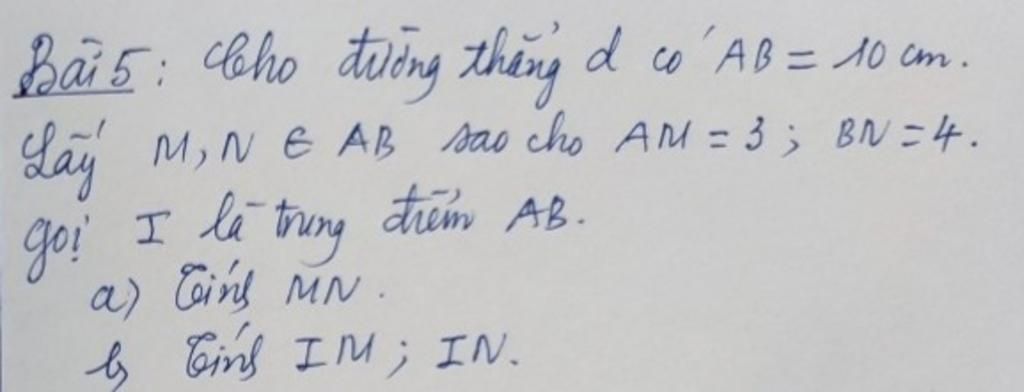 Bài 5: Cho đường thẳng d có AB = 10 cm.
Lấy M, N ∈ AB sao cho AM = 3; BN = 4.
gọi I là trung điểm AB.
a) Tính MN.
b) Tính IM; IN.